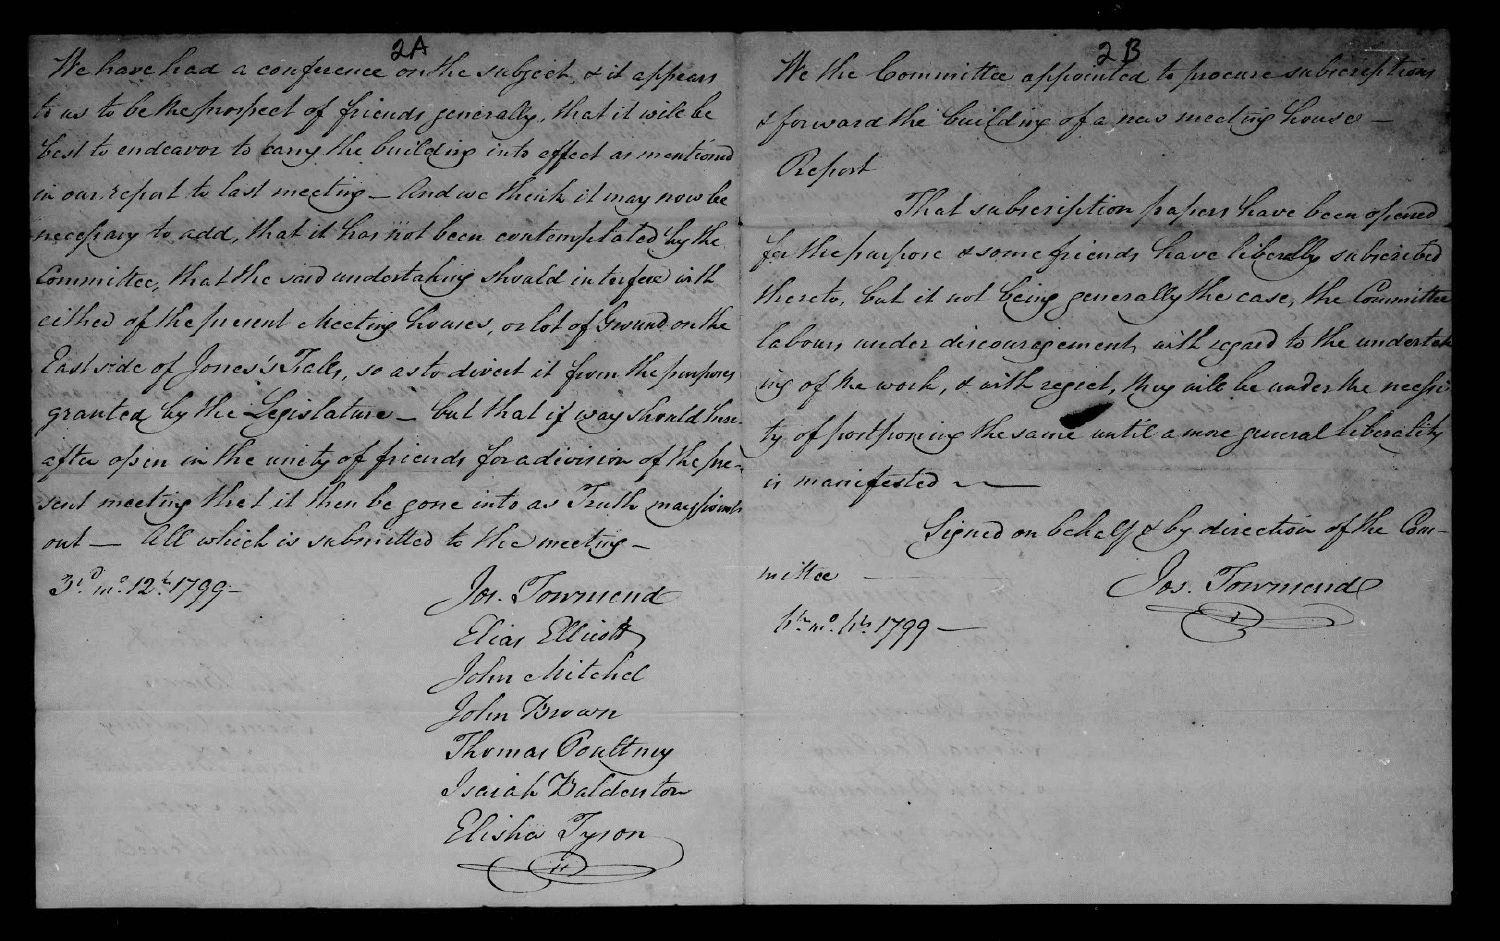 2A
We have had a conference on the subject, & it appears
to us to be the prospect of friends generally, that it will be
best to endeavor to carry the building into effect as mentioned
in our report to last meeting — And we think it may now be
necessary to add, that it has not been contemplated by the
Committee, that the said undertaking should interfere with
either of the present Meeting houses, or lot of Ground on the
East side of Jones's Falls, so as to divert it from the purposes
granted by the Legislature — but that if way should here-
after open in the unity of friends for a division of the pre-
sent meeting that it then be gone into as Truth may point
out — All which is submitted to the meeting —
3d. mo. 12th. 1799 —
Jos. Townsend
Elias Ellicott
John Mitchel
John Brown
Thomas Poultney
Isaiah Balderston
Elisha Tyson
2B
We the Committee appointed to procure subscriptions
& forward the building of a new meeting house —
Report
That subscription papers have been opened
for the purpose & some friends have liberally subscribed
thereto, but it not being generally the case, the Committee
labours under discouragement, with regard to the undertak
ing of the work, & with regret, they will be under the necessi
ty of postponing the same until a more general liberality
is manifested —
Signed on behalf & by direction of the Com-
mittee
Jos. Townsend
6th. mo. 6th. 1799 —